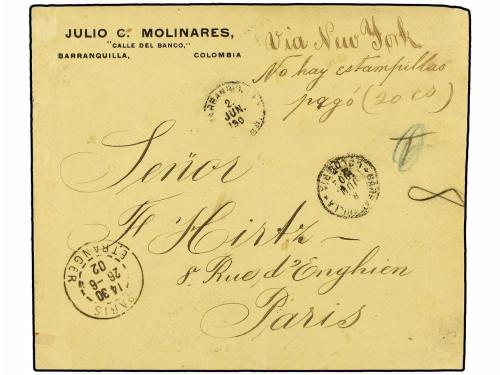 JULIO C. MOLINARES,
"CALLE DEL BANCO,"
BARRANQUILLA, COLOMBIA
Via New York
No hay estampillas
pagó (20 cs)
2
JUN.
190
Señor
F Hirtz
8 Rue d'Enghien
Paris
PARIS
14 30
26-6
02
ETRANGER